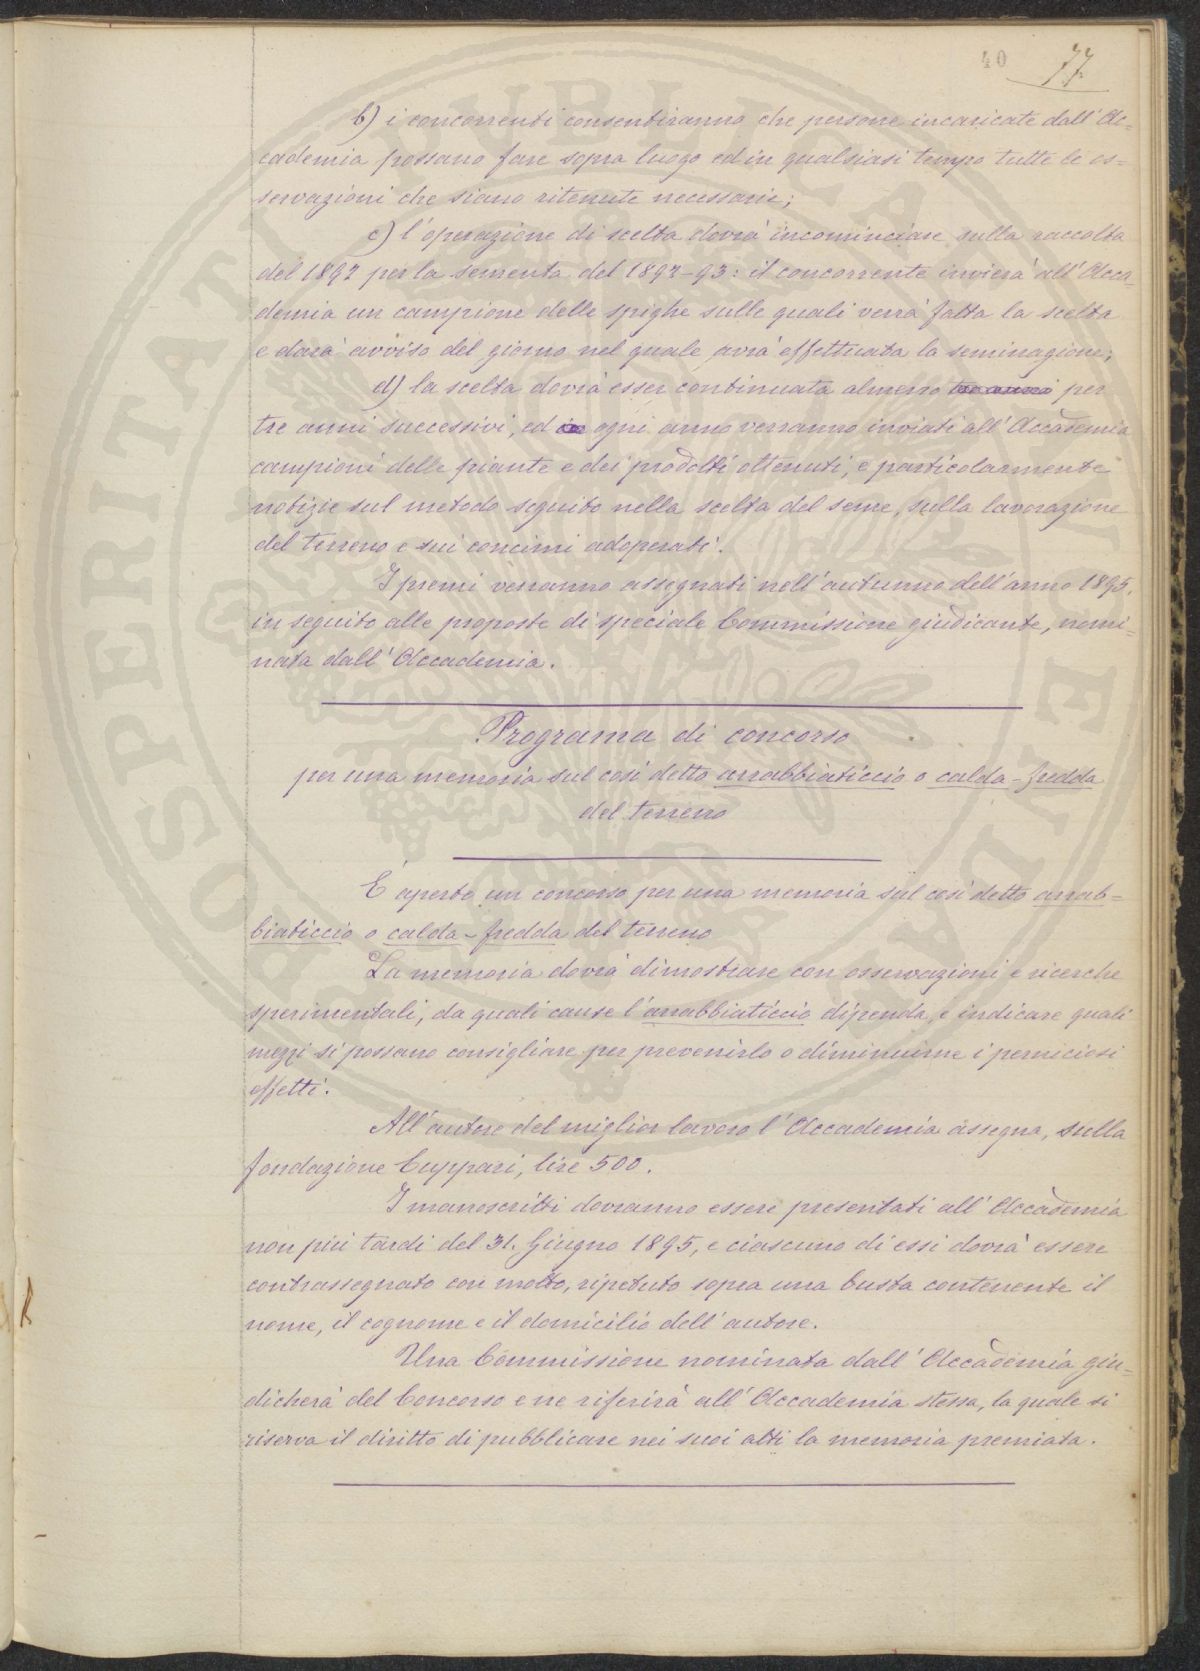 40 77
b) i concorrenti consentiranno che persone incaricate dall'Ac=
cademia possano fare sopra luogo ed in qualsiasi tempo tutte le os=
servazioni che siano ritenute necessarie;
c) l'operazione di scelta dovrà incominciare sulla raccolta
del 1892 per la sementa del 1892-93: il concorrente invierà all'Acca=
demia un campione delle spighe sulle quali verrà fatta la scelta
e darà avviso del giorno nel quale avrà effettuata la seminagione;
d) la scelta dovrà esser continuata almeno tre anni per
tre anni successivi, ed in ogni anno verranno inviati all'Accademia
campioni delle piante e dei prodotti ottenuti, e particolarmente
notizie sul metodo seguito nella scelta del seme, sulla lavorazione
del terreno e sui concimi adoperati.
I premi verranno assegnati nell'autunno dell'anno 1895,
in seguito alle proposte di speciale Commissione giudicante, nomi=
nata dall'Accademia.
Programa di concorso
per una memoria sul così detto arrabbiaticcio o calda-fredda
del terreno
È aperto un concorso per una memoria sul così detto arrab=
biaticcio o calda-fredda del terreno
La memoria dovrà dimostrare con osservazioni e ricerche
sperimentali, da quali cause l'arrabbiaticcio dipenda, e indicare quali
mezzi si possano consigliare per prevenirlo o diminuirne i perniciosi
effetti.
All'autore del miglior lavoro l'Accademia assegna, sulla
fondazione Cuppari, lire 500.
I manoscritti dovranno essere presentati all'Accademia
non più tardi del 31. Giugno 1895, e ciascuno di essi dovrà essere
contrassegnato con motto, ripetuto sopra una busta contenente il
nome, il cognome e il domicilio dell'autore.
Una Commissione nominata dall'Accademia giu=
dicherà del Concorso e ne riferirà all'Accademia stessa, la quale si
riserva il diritto di pubblicare nei suoi atti la memoria premiata.
PROSPERITATI PUBLICAE AUGENDAE